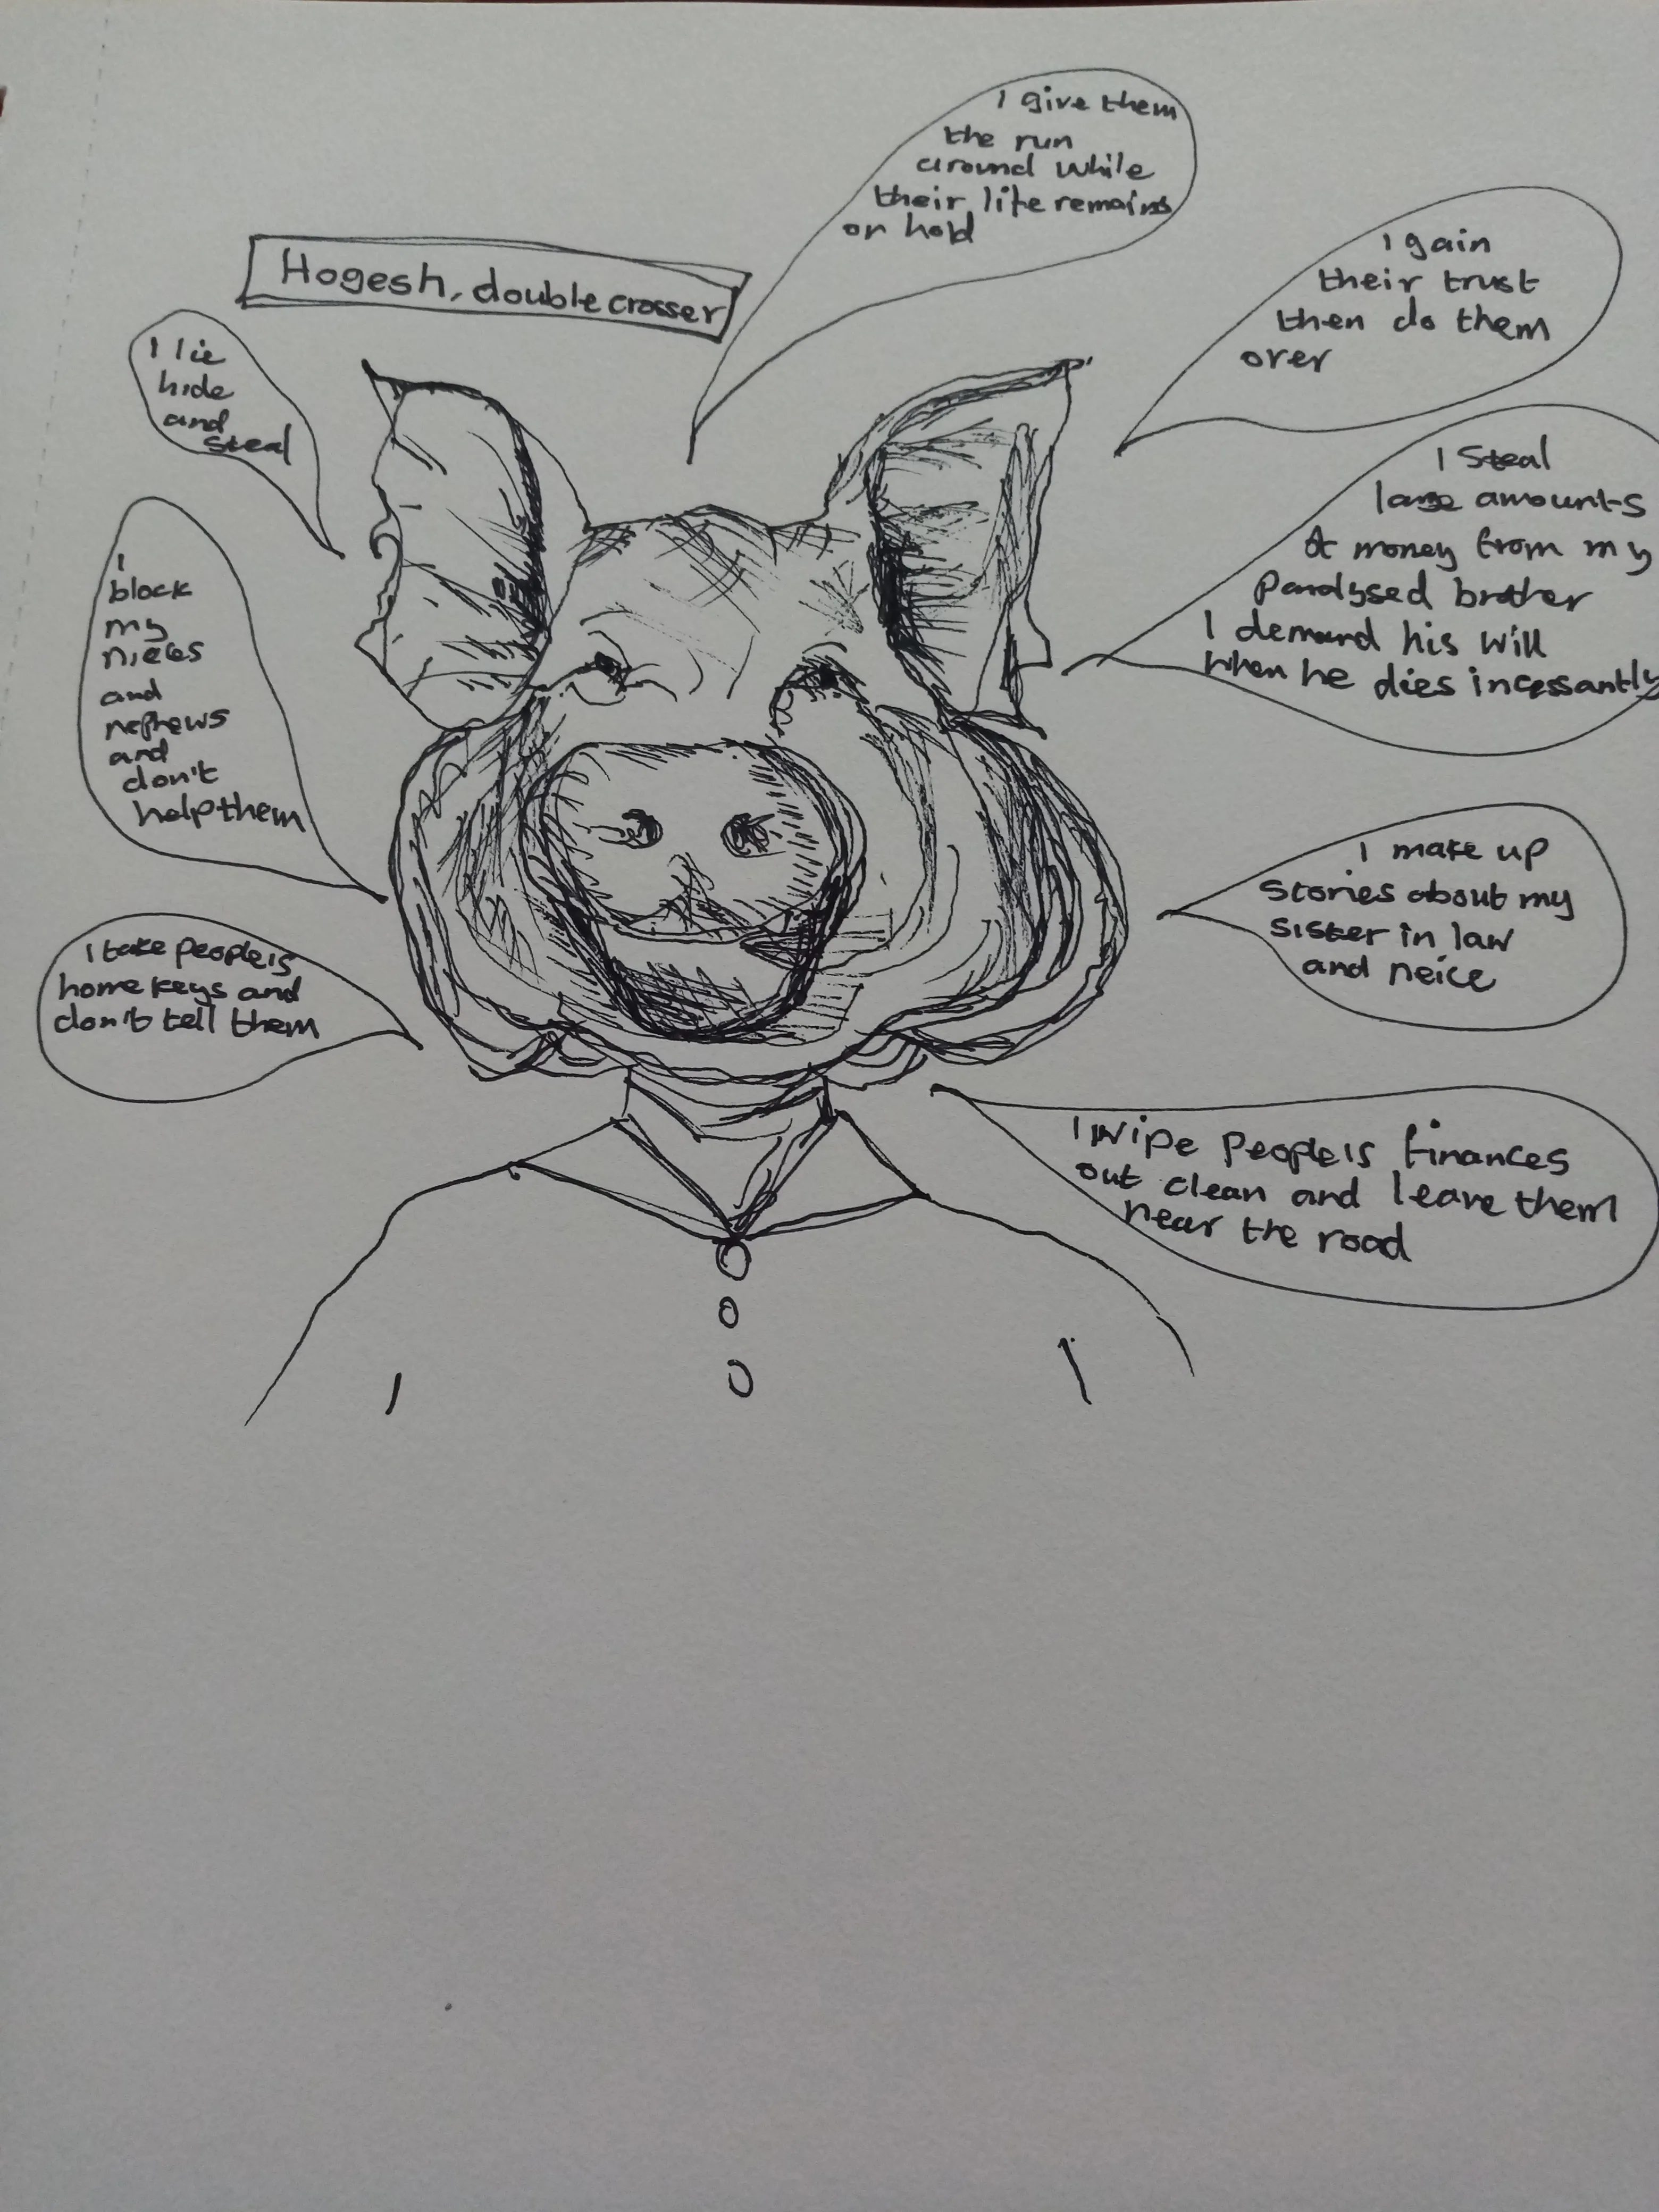 I give them
the run
around while
their life remains
on hold
Hogesh, double crosser
I gain
their trust
then do them
over
I lie
hide
and
steal
I steal
large amounts
of money from my
paralysed brother
I demand his will
when he dies incessantly
I
block
my
nieces
and
nephews
and
don't
help them
I make up
stories about my
sister in law
and neice
I take people's
home keys and
don't tell them
I wipe people's finances
out clean and leave them
near the road